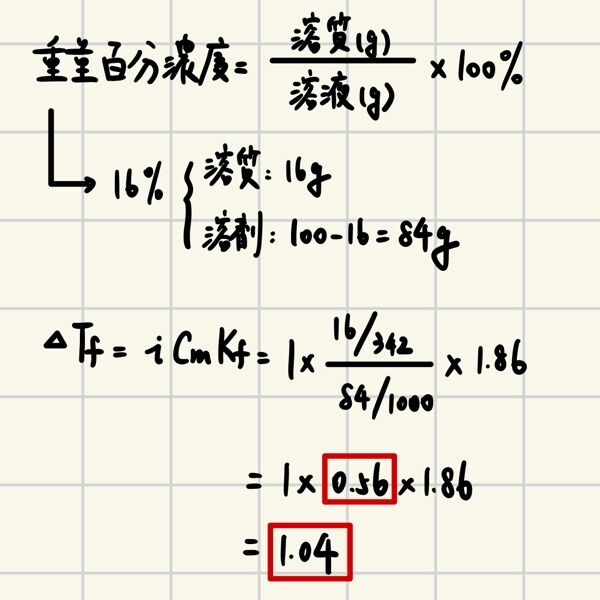 重量百分濃度 = 溶質(g) / 溶液(g) × 100%
16% { 溶質: 16g
溶劑: 100-16 = 84g
△Tf = i Cm Kf = 1 × (16/342) / (84/1000) × 1.86
= 1 × 0.56 × 1.86
= 1.04